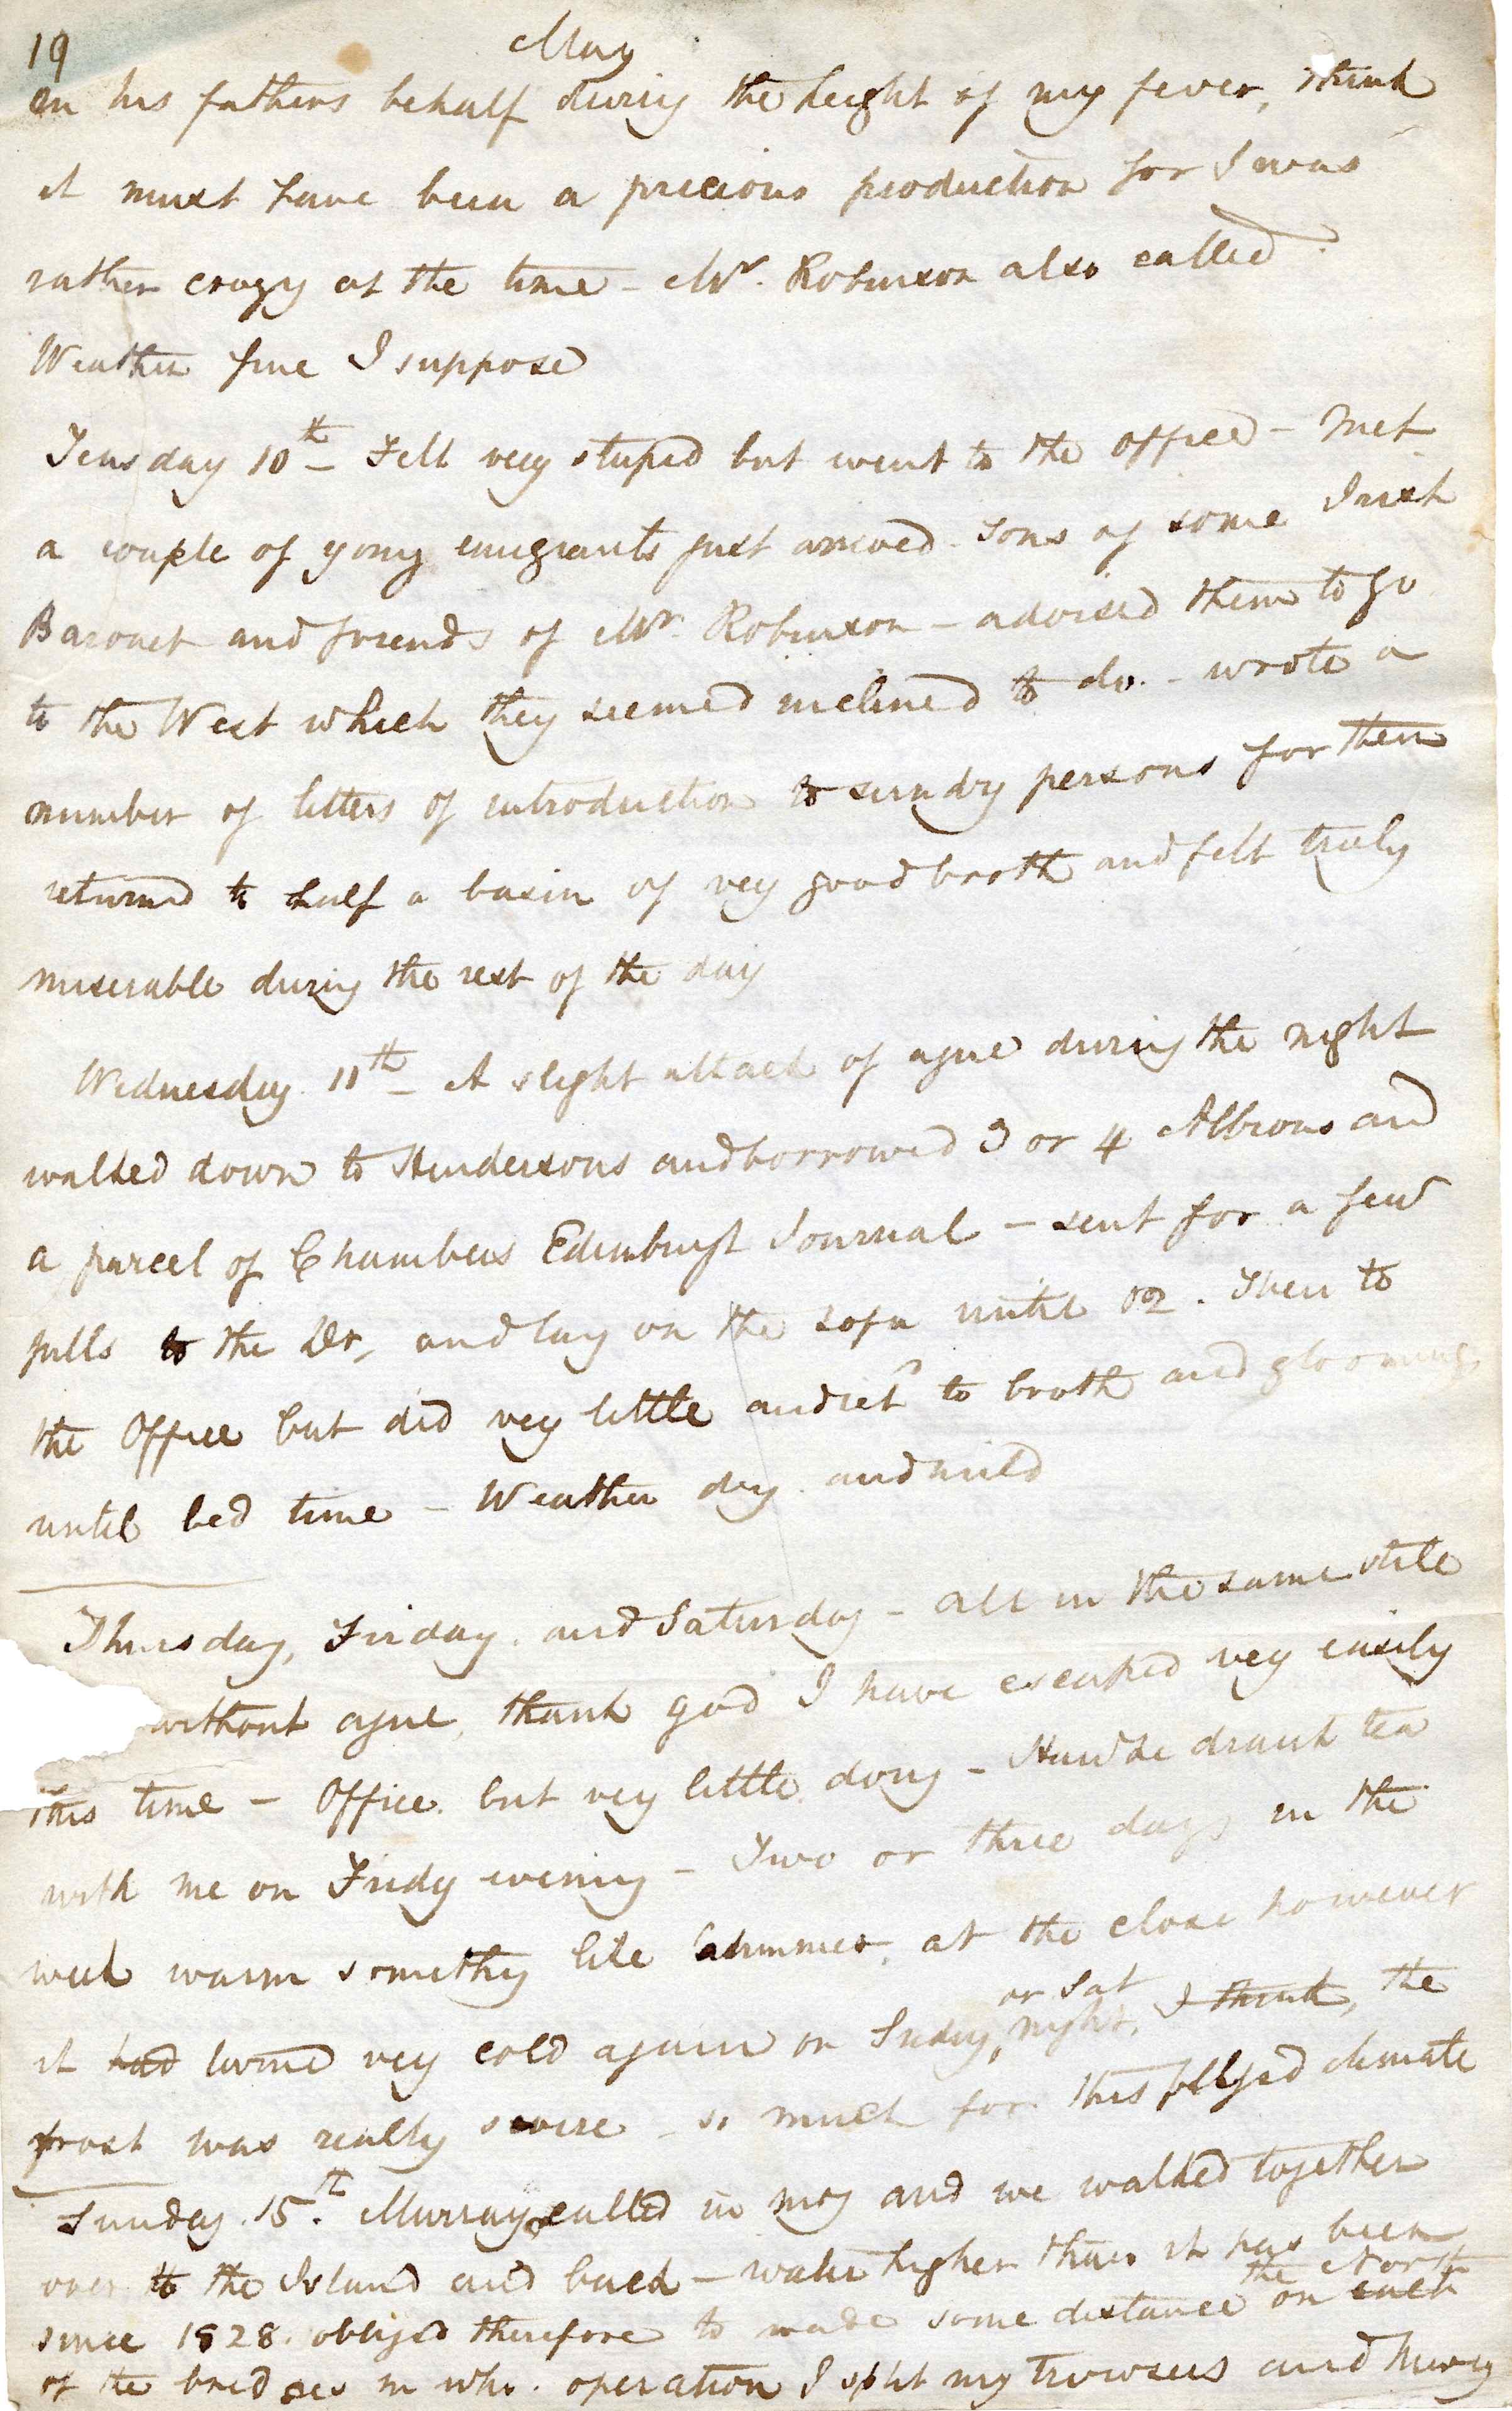 19
May
on his fathers behalf during the height of my fever, think
it must have been a precious production for I was
rather crazy at the time - Mr. Robinson also called.
Weather fine I suppose
Tuesday 10th - Felt very stupid but went to the office - Met
a couple of young emigrants just arrived - sons of some Irish
Baronet and friends of Mr. Robinson - advised them to go
to the West which they seemed inclined to do. - wrote a
number of letters of introduction to sundry persons for them
returned to half a basin of very good broth and felt truly
miserable during the rest of the day
Wednesday 11th - A slight attack of ague during the night
walked down to Hendersons and borrowed 3 or 4 Albions and
a parcel of Chambers Edinburgh Journal - sent for a few
pills to the Dr, and lay on the sofa until 12. Then to
the Office but did very little and retd to broth and glooming
until bed time - Weather dry and mild
Thursday, Friday and Saturday - all in the same stile
without ague, thank god I have escaped very easily
this time - Office but very little doing - Hawke drank tea
with me on Fridy evening - Two or three days in the
week warm something like summer, at the close however
it had turned very cold again on Friday or Sat night, I think, the
frost was really severe - so much for this blessed climate
Sunday 15th. Murray called in mng and we walked together
over to the Island and back - water higher than it has been
since 1828. obliged therefore to wade some distance on each the North
of the bridges in whh. operation I split my trowsers and Murray